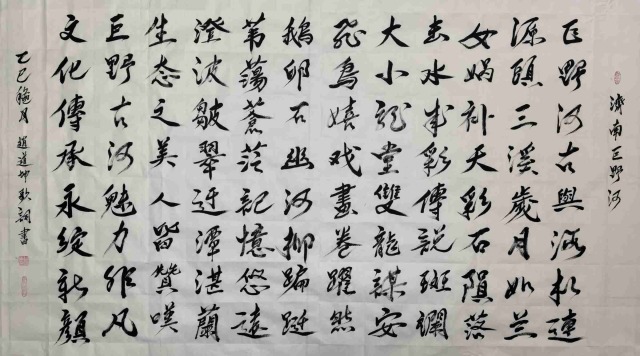 濟南巨野河
巨野河古與濟水連
源頭三溪歲月如蘭
女媧補天彩石隕落
玄水成彩傳說斑斕
大小龍堂雙龍謀安
飛鳥嬉戲畫卷躍然
鵝卵石幽河柳蹁躚
葦蕩蒼茫記憶悠遠
澄波皺翠迂潭湛蘭
生态之美人皆贊嘆
巨野古河魅力非凡
文化傳承永綻新顏
乙巳 月 趙道坤 詞書